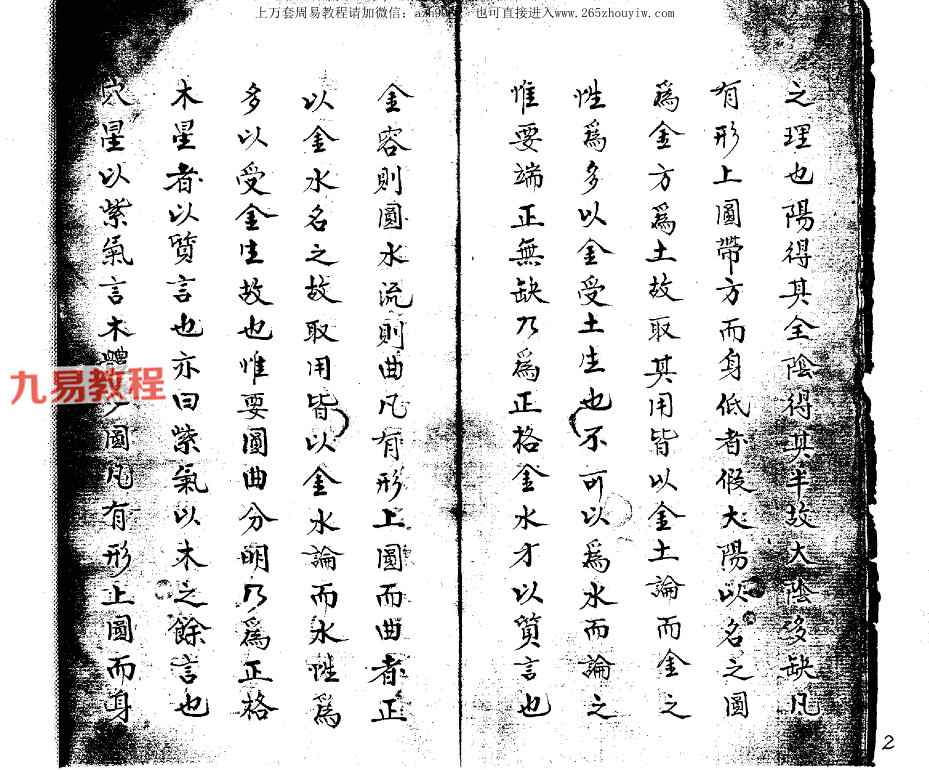 上万套周易教程请加微信： 也可直接进入www.265zhouyiw.com
之理也陽得其全陰得其半故大陰多缺凡
有形上圓帶方而身低者假大陽以名之圓
爲金方爲土故取其用皆以金土論而金之
性爲多以金受土生也不可以爲水而論之
惟要端正無缺乃爲正格金水才以質言也
金容則圓水流則曲凡有形上圓而曲者正
以金水名之故取用皆以金水論而水性爲
多以受金生故也惟要圓曲分明乃爲正格
木星者以質言也亦曰紫氣以木之餘言也
穴星以紫氣言木體 圓凡有形上圓而身
九易教程
2